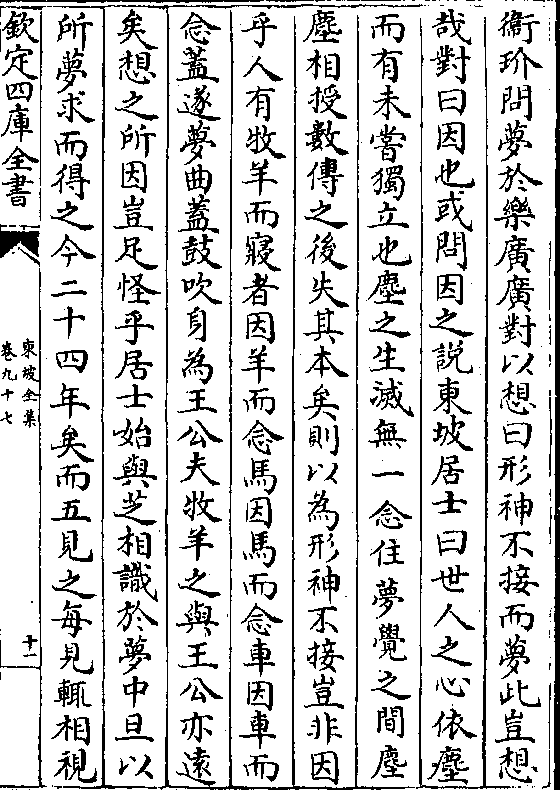 衞玠問夢於樂廣廣對以想曰形神不接而夢此豈想
哉對曰因也或問因之說東坡居士曰世人之心依塵
而有未嘗獨立也塵之生滅無一念住夢覺之間塵
塵相授數傳之後失其本矣則以為形神不接豈非因
乎人有牧羊而寢者因羊而念馬因馬而念車因車而
念蓋遂夢曲蓋鼓吹身為王公夫牧羊之與王公亦遠
矣想之所因豈足怪乎居士始與芝相識於夢中旦以
所夢求而得之今二十四年矣而五見之每見輒相視
欽定四庫全書
東坡全集
卷九十七
十一